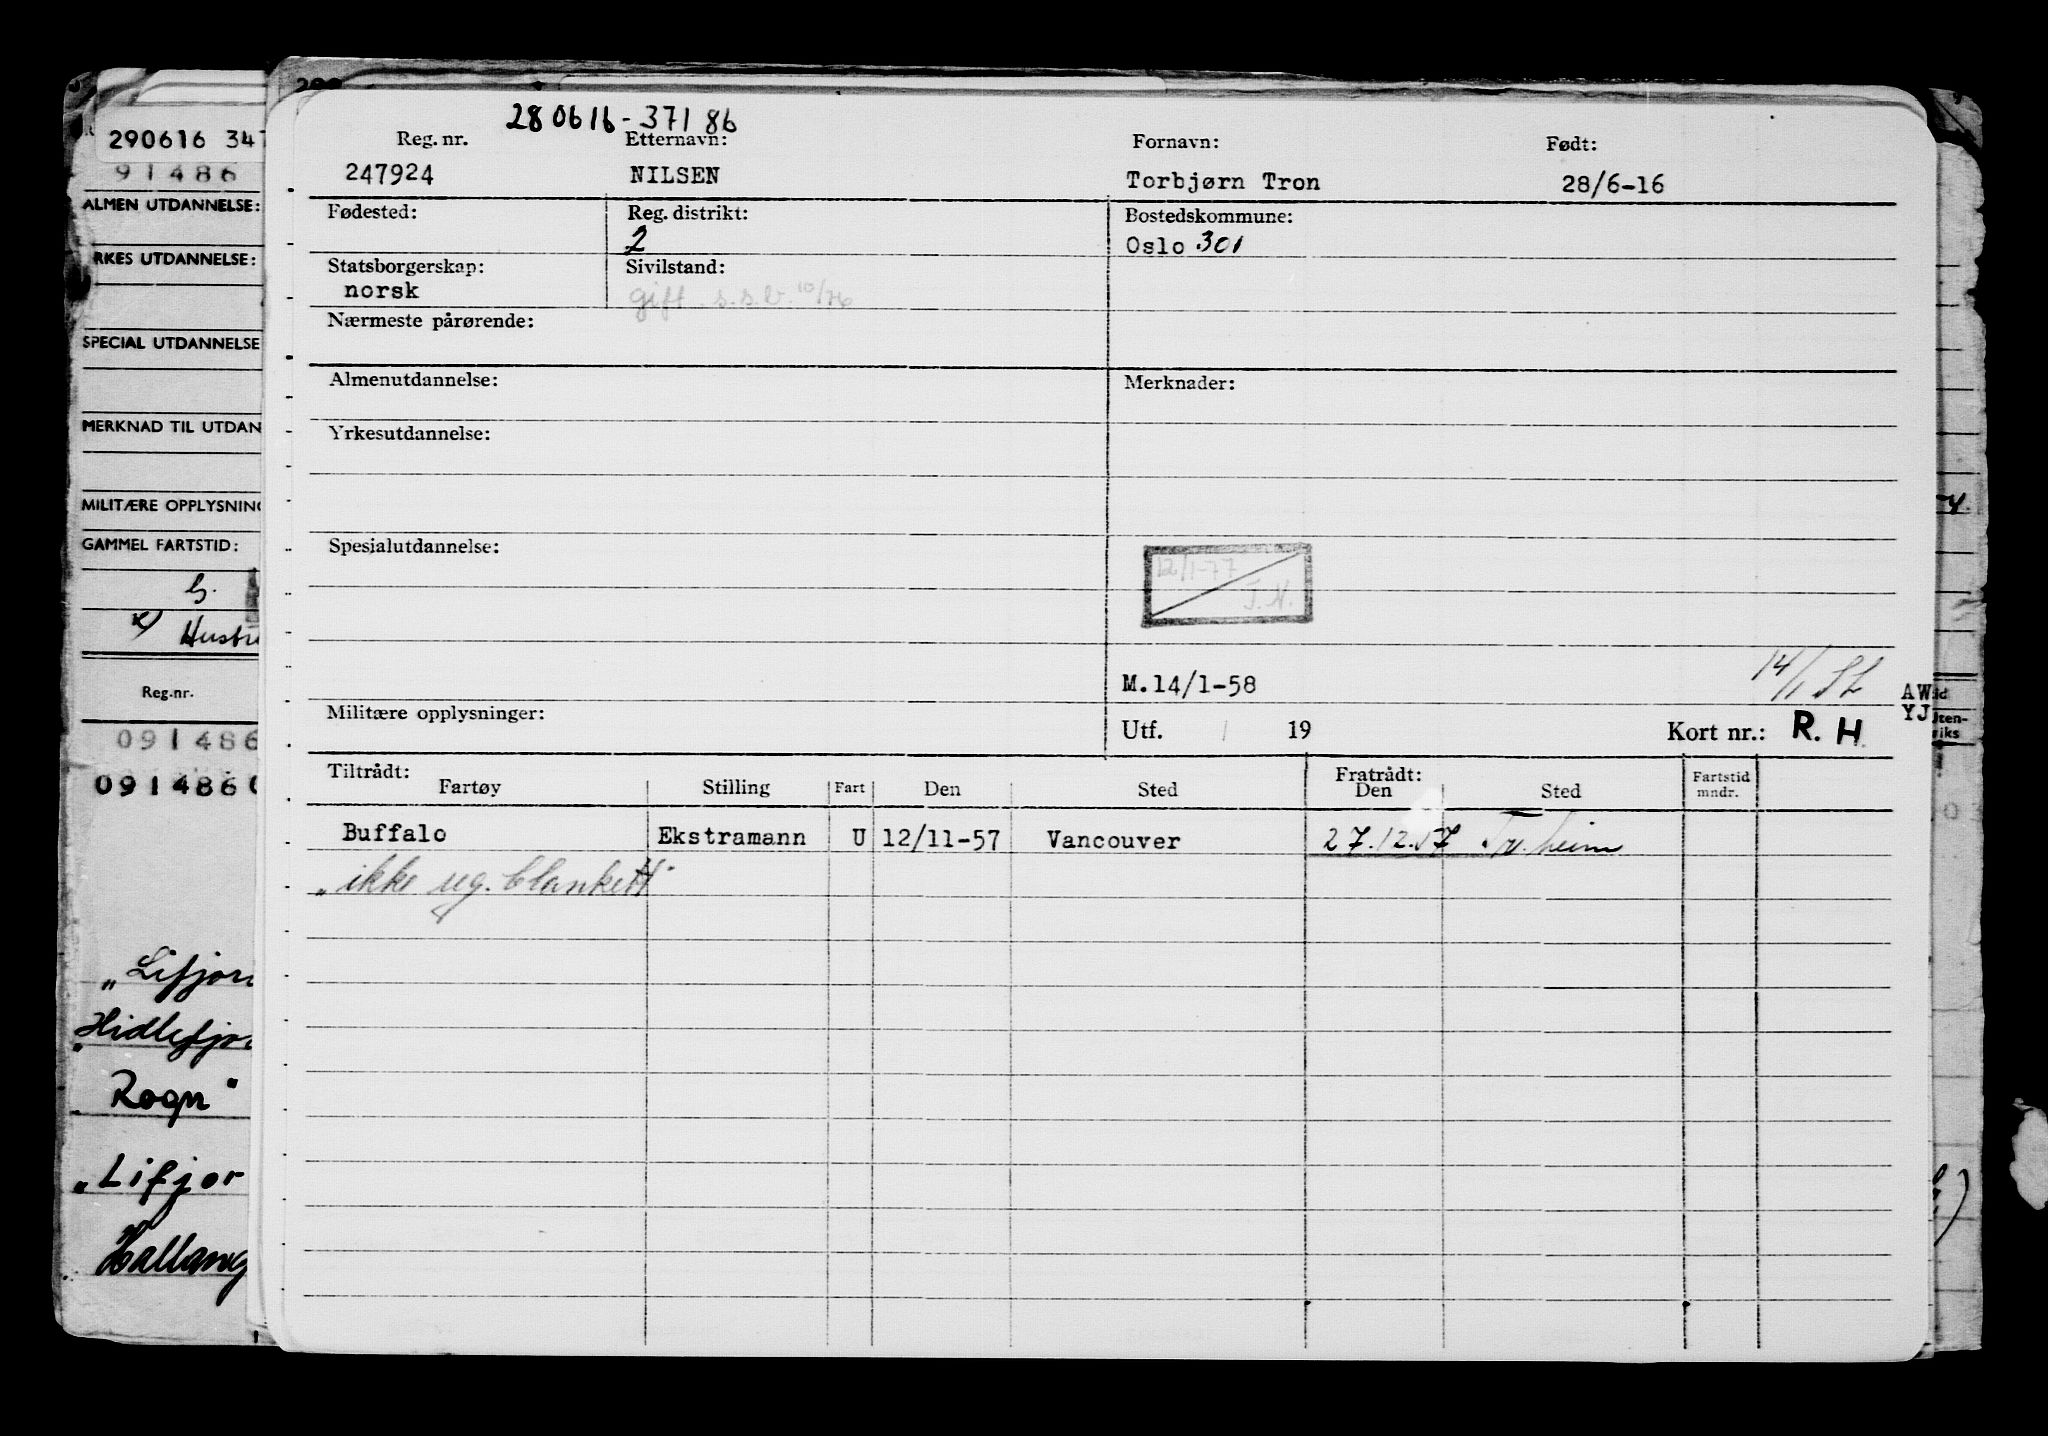 280616-37186
Reg. nr. Etternavn: Fornavn: Født:
247924 NILSEN Torbjørn Tron 28/6-16
Fødested: Reg. distrikt: Bostedskommune:
2 Oslo 301
Statsborgerskap: Sivilstand:
norsk gift s.s.b. 10/76
Nærmeste pårørende:
Almenutdannelse: Merknader:
Yrkesutdannelse:
Spesialutdannelse:
12/1-77
T.N.
M.14/1-58 14/1
Militære opplysninger: Utf. / 19 Kort nr.: R. H.
Tiltrådt: Fratrådt:
Fartøy Stilling Fart Den Sted Den Sted Fartstid mndr.
Buffalo Ekstramann U 12/11-57 Vancouver 27.12.57 Tr.heim
"ikke reg. blankett"
290616 341
91486
ALMEN UTDANNELSE:
RKES UTDANNELSE:
SPECIAL UTDANNELSE
MERKNAD TIL UTDAN
MILITÆRE OPPLYSNING
GAMMEL FARTSTID:
Hustr
Reg.nr.
091486
091486
"Lifjor
"Hidlefjor
Rogn"
"Lifjor
Hallang
AW
YJ
id
Uten-
riks